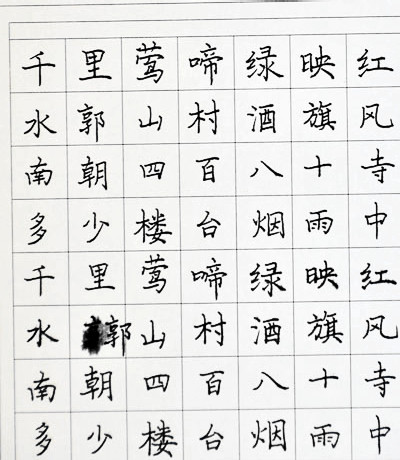 千里莺啼绿映红
水郭山村酒旗风
南朝四百八十寺
多少楼台烟雨中
千里莺啼绿映红
水郭山村酒旗风
南朝四百八十寺
多少楼台烟雨中